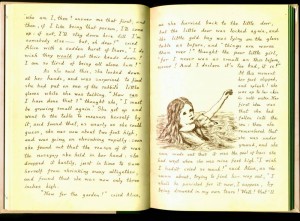 who am I, then? answer me that first, and
then, if I like being that person, I'll come
up: if not, I'll stay down here till I'm
somebody else— but, oh dear!" cried
Alice with a sudden burst of tears, "I do
wish they would put their heads down! I
am so tired of being all alone here!"
As she said this, she looked down
at her hands, and was surprised to find
she had put on one of the rabbit's little
gloves while she was talking. "How can
I have done that?" thought she, "I must
be growing small again." She got up and
went to the table to measure herself by
it, and found that, as nearly as she could
guess, she was now about two feet high,
and was going on shrinking rapidly: soon
she found out that the reason of it was
the nosegay she held in her hand: she
dropped it hastily, just in time to save
herself from shrinking away altogether,
and found that she was now only three
inches high.
"Now for the garden!" cried Alice,
as she hurried back to the little door,
but the little door was locked again, and
the little gold key was lying on the glass
table as before, and "things are worse
than ever!" thought the poor little girl,
"for I never was as small as this before,
never! And I declare it's too bad, it is!"
At this moment
her foot slipped,
and splash! she
was up to her chin
in salt water. Her
first idea was
that she had
fallen into the
sea: then she
remembered that
she was under
ground, and she
soon made out that it was the pool of tears she
had wept when she was nine feet high. "I wish
I hadn't cried so much!" said Alice, as she
swam about, trying to find her way out, "I
shall be punished for it now, I suppose, by
being drowned in my own tears! Well! that'll